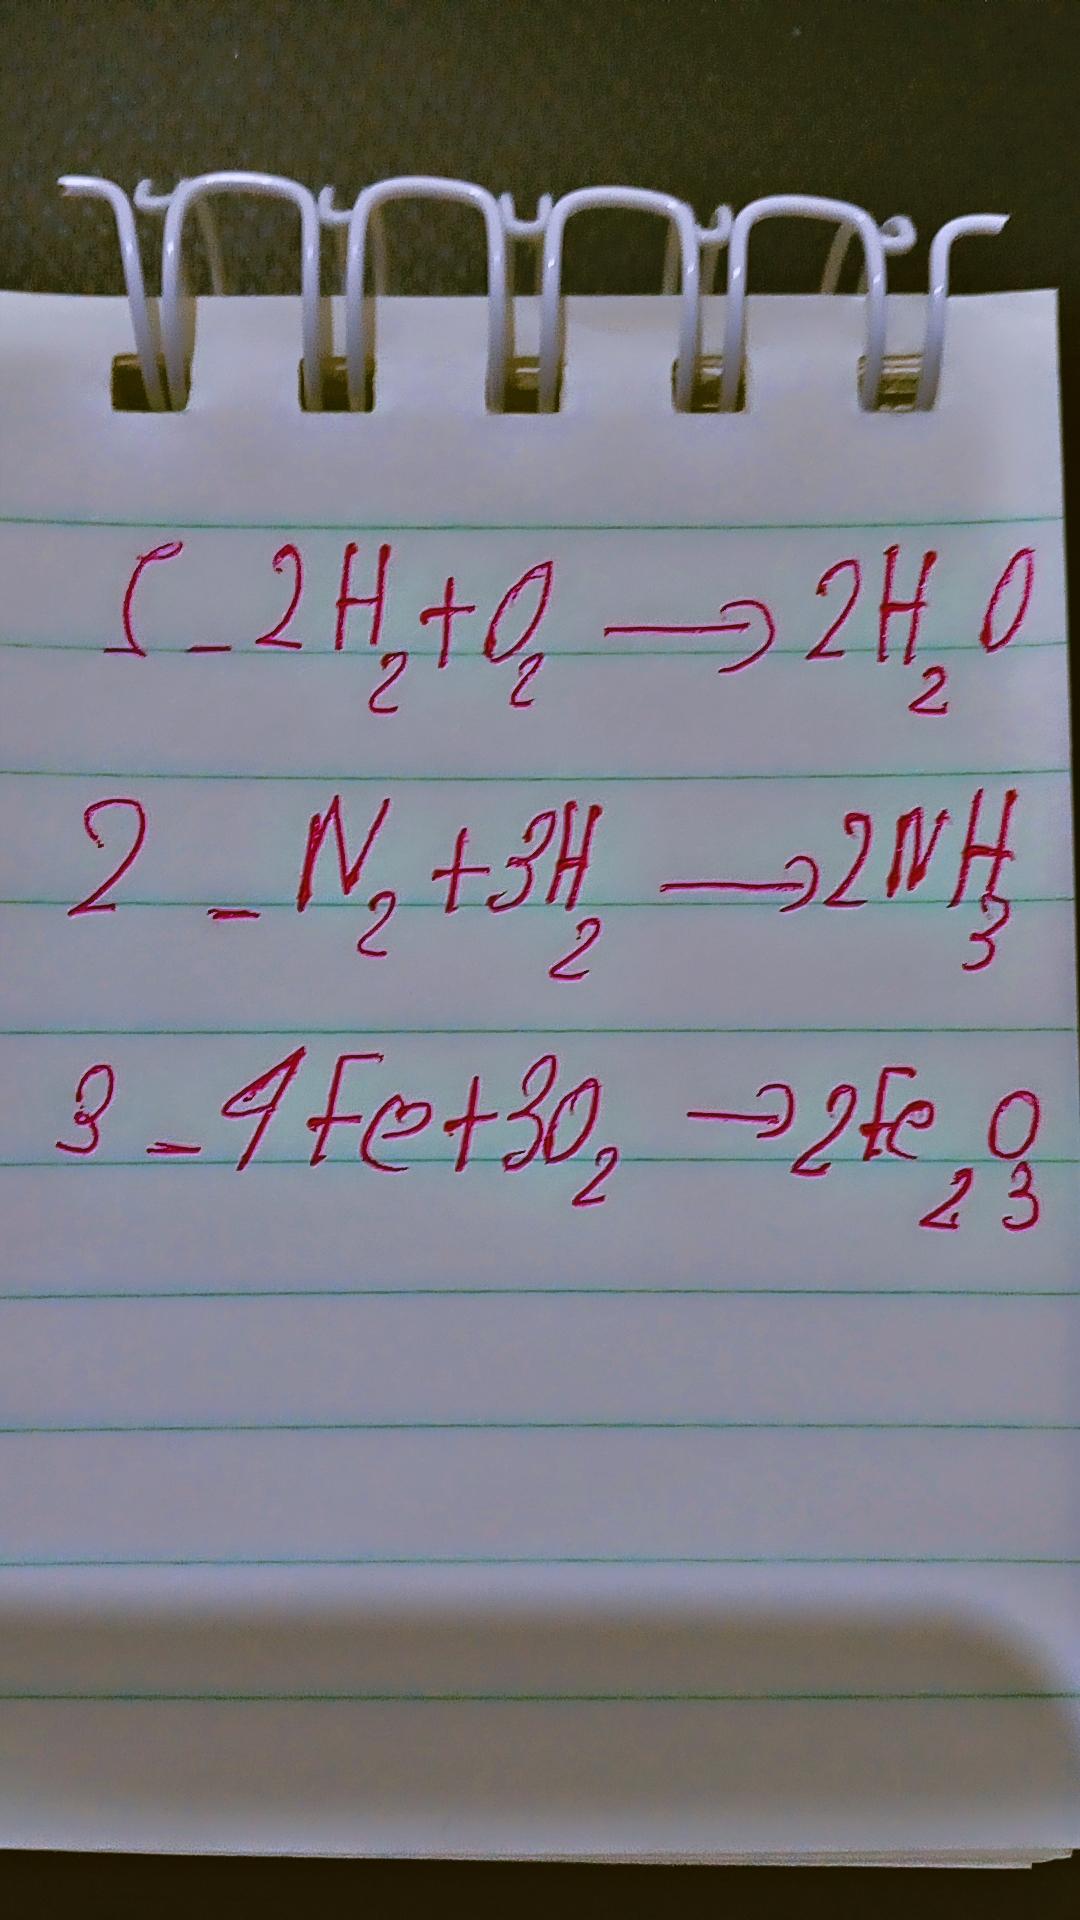 1 - 2H₂ + O₂ → 2H₂O
2 - N₂ + 3H₂ → 2NH₃
3 - 4Fe + 3O₂ → 2Fe₂O₃